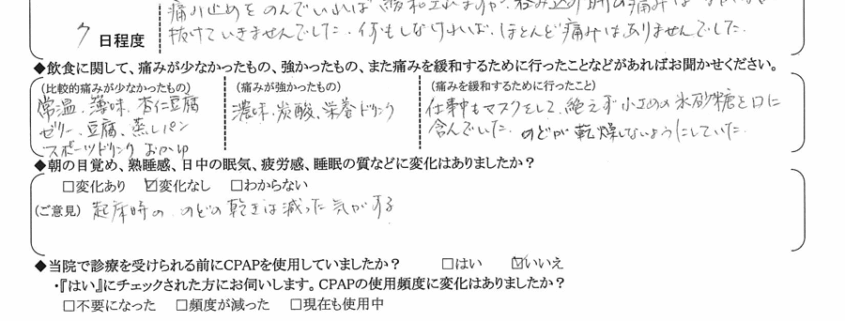 痛み止めをのんでいれば 緩和されますが、飲み込む時の痛みは
7 日程度
抜けていきませんでした。何もしなければ、ほとんど痛みはありませんでした。
◆飲食に関して、痛みが少なかったもの、強かったもの、また痛みを緩和するために行ったことなどがあればお聞かせください。
(比較的痛みが少なかったもの)
常温、薄味、杏仁豆腐
ゼリー、豆腐、蒸しパン
スポーツドリンク おかゆ
(痛みが強かったもの)
濃味、炭酸、栄養ドリンク
(痛みを緩和するために行ったこと)
仕事中もマスクをして、絶えず小さめの氷砂糖を口に
含んでいた。のどが乾燥しないようにしていた。
◆朝の目覚め、熟睡感、日中の眠気、疲労感、睡眠の質などに変化はありましたか？
□変化あり ☑変化なし □わからない
(ご意見) 起床時の のどの乾きは減った気がする
◆当院で診療を受けられる前にCPAPを使用していましたか？ □はい ☑いいえ
・『はい』にチェックされた方にお伺いします。CPAPの使用頻度に変化はありましたか？
□不要になった □頻度が減った □現在も使用中